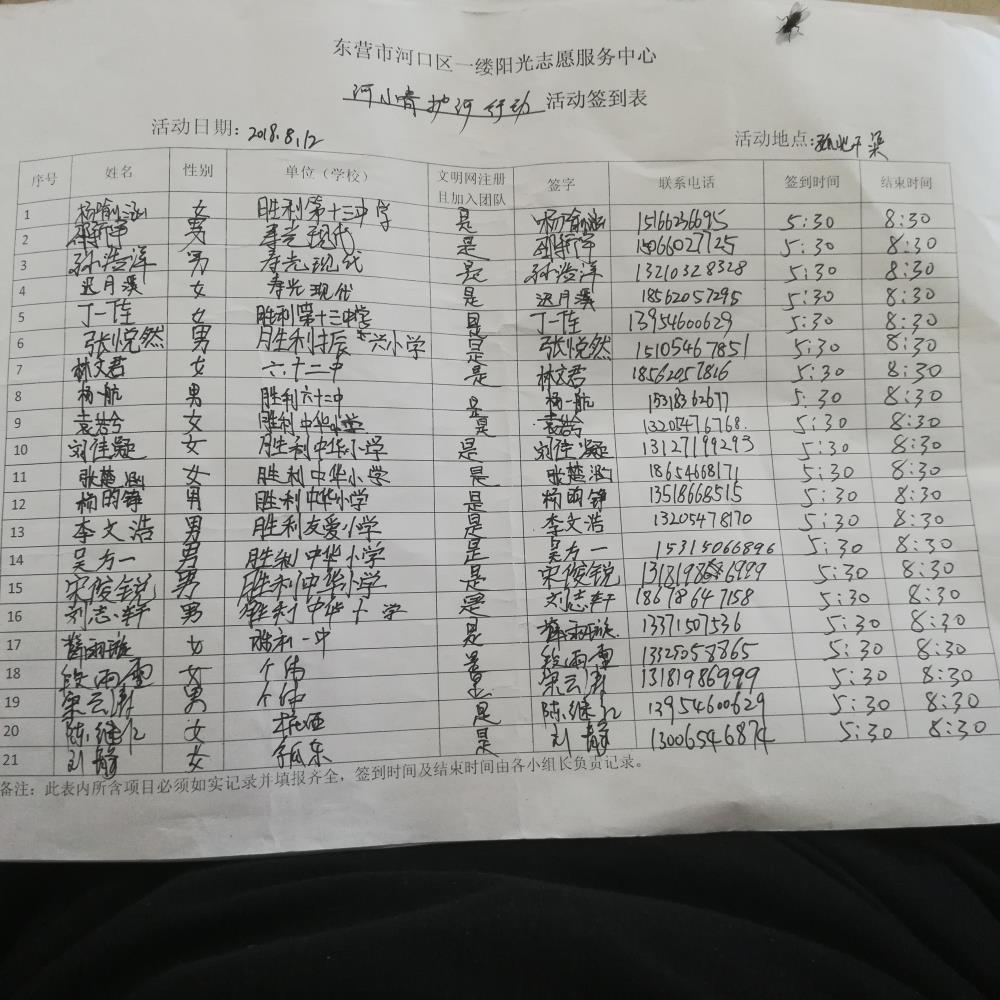 东营市河口区一缕阳光志愿服务中心
河小青护河行动 活动签到表
活动日期：2018.8.12 活动地点：干渠
序号 姓名 性别 单位（学校） 文明网注册且加入团队 签字 联系电话 签到时间 结束时间
1 杨喻涵 女 胜利第十三中学 是 杨喻涵 15166236695 5:30 8:30
2 男 寿光现代 是 15066027125 5:30 8:30
3 孙浩洋 男 寿光现代 是 孙浩洋 13210328328 5:30 8:30
4 迟月溪 女 寿光现代 是 迟月溪 18562057295 5:30 8:30
5 丁一 女 胜利第十三中学 是 丁一 13954600629 5:30 8:30
6 张悦然 男 胜利振兴小学 是 张悦然 15105467851 5:30 8:30
7 林文君 女 六十二中 是 林文君 18562057816 5:30 8:30
8 杨一航 男 胜利六十二中 是 杨一航 15318362677 5:30 8:30
9 袁 女 胜利中华小学 是 袁 13205476768 5:30 8:30
10 刘佳凝 女 胜利中华小学 是 刘佳凝 13127199293 5:30 8:30
11 张楚涵 女 胜利中华小学 是 张楚涵 18654668171 5:30 8:30
12 杨昀铮 男 胜利中华小学 是 杨昀铮 13518668515 5:30 8:30
13 李文浩 男 胜利友爱小学 是 李文浩 13205478170 5:30 8:30
14 吴方一 男 胜利中华小学 是 吴方一 15315066896 5:30 8:30
15 宋俊锐 男 胜利中华小学 是 宋俊锐 5:30 8:30
16 刘志轩 男 胜利中华小学 是 刘志轩 18678647158 5:30 8:30
17 女 胜利一中 是 13371507536 5:30 8:30
18 段雨 女 个体 是 段雨 13325058865 5:30 8:30
19 云 男 个体 是 云 13181986999 5:30 8:30
20 陈继 女 是 陈继 13954600629 5:30 8:30
21 刘静 女 孤东 是 刘静 13006546874 5:30 8:30
备注：此表内所含项目必须如实记录并填报齐全，签到时间及结束时间由各小组长负责记录。